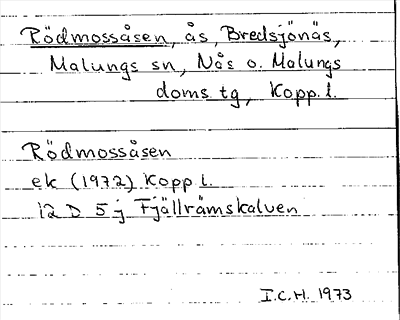 Rödmossåsen, ås, Bredsjönäs,
Malungs sn, Nås o. Malungs
doms. tg, Kopp. l.
Rödmossåsen
ek (1972) Kopp l.
12 D 5 j Fjällrämskalven
I.C.H. 1973